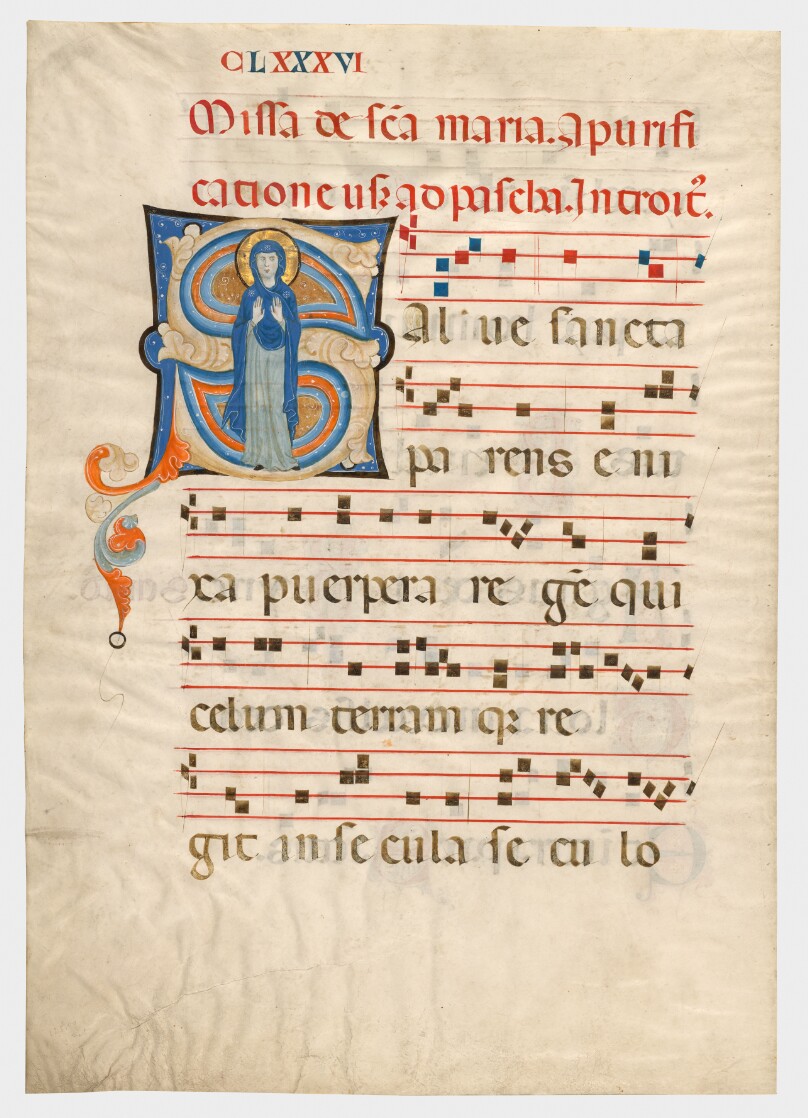 CLXXXVI
Missa de sc̄a maria. A purifi
catione usq ad pascha. Introit̉.
SAlive sancta
pa rens e ni
xa puerpera re gē qui
celum terram qꝫ re
git in se cula se cu lo